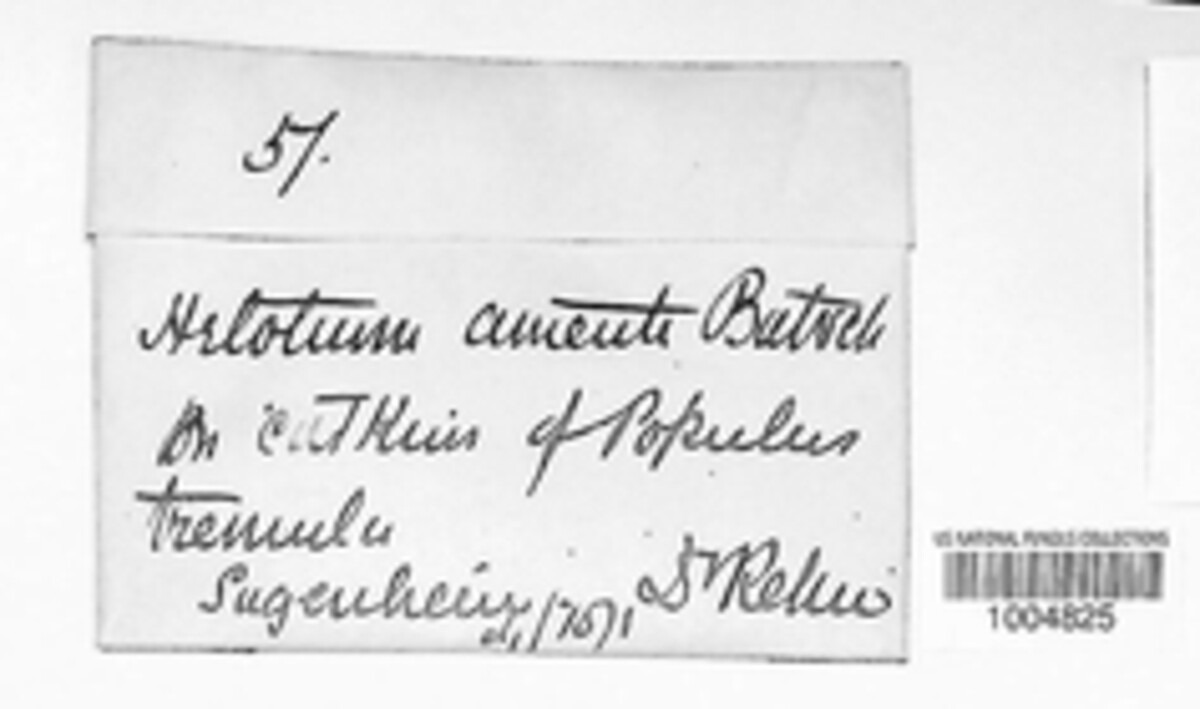 57.
Helotium amenti Batsch
On catkins of Populus
tremula
Sugenheim
Dr Rehm
US NATIONAL FUNGUS COLLECTIONS
1004825